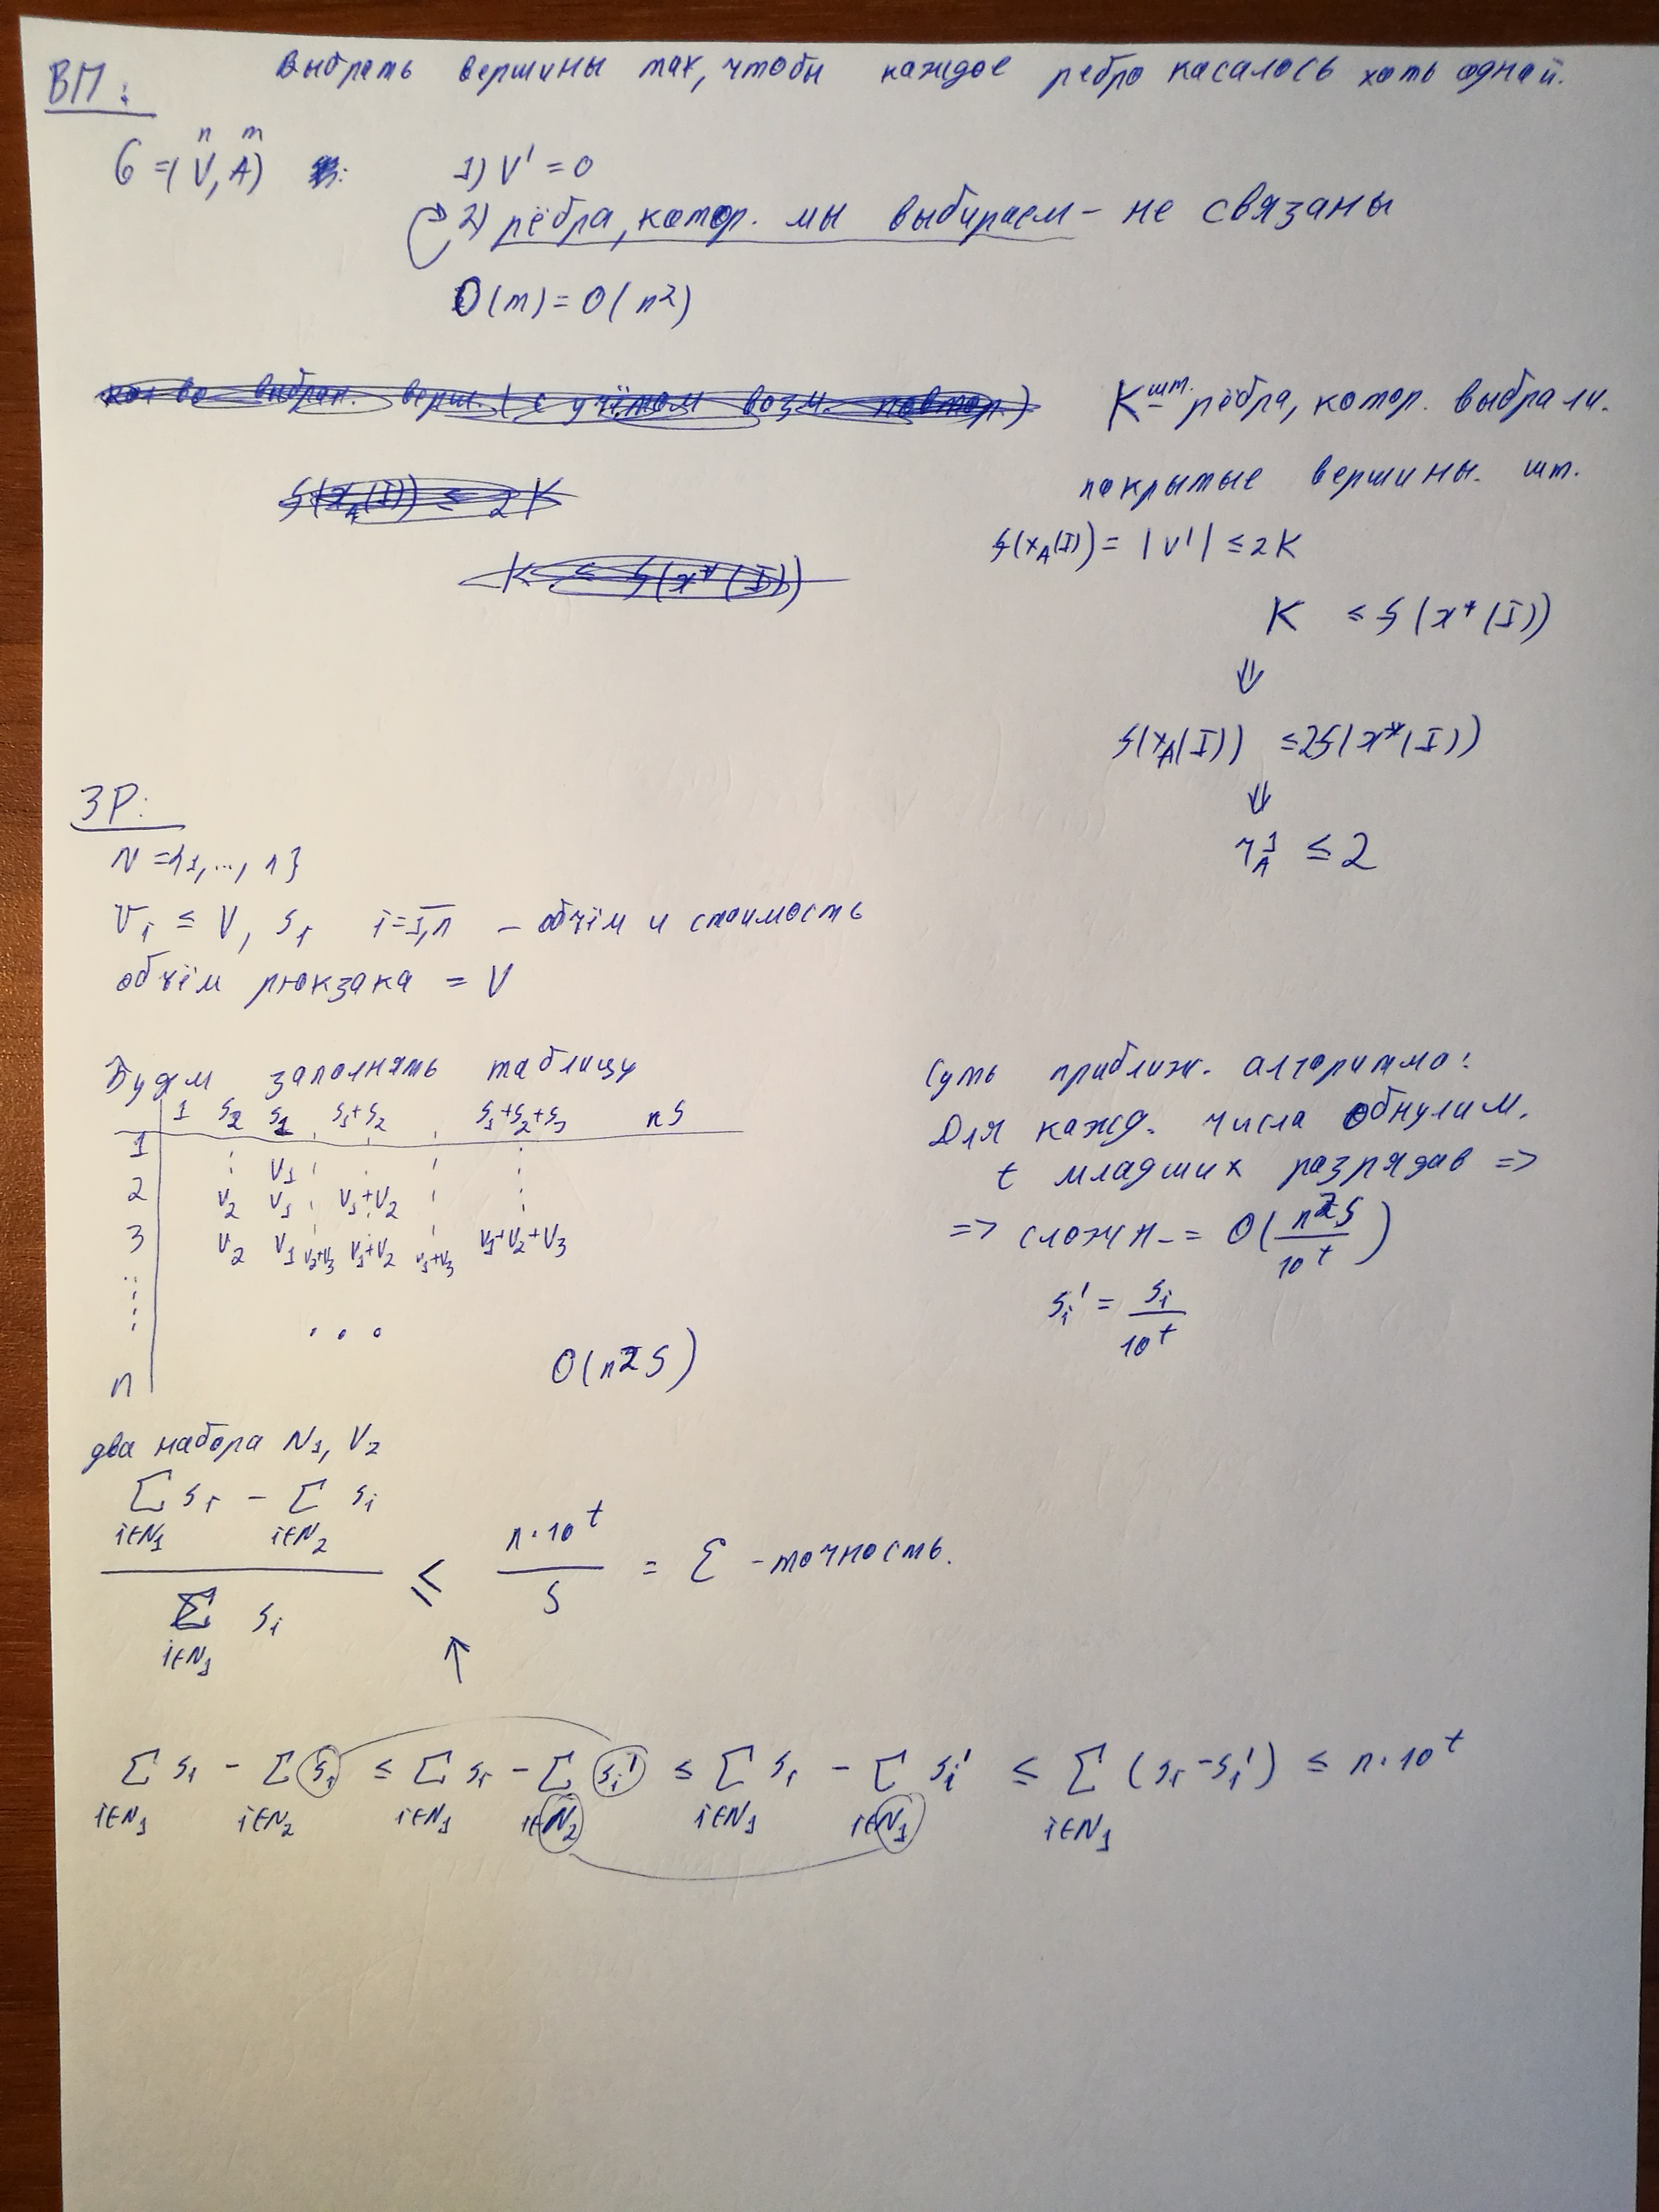 ВП: Выбрать вершины так, чтобы каждое ребро касалось хоть одной.
n m
G = (V, A) 1) V' = 0
2) рёбра, котор. мы выбираем – не связаны
O(m) = O(n²)
кол-во выбран. верш. (с учётом возм. повтор.)
f(x_A(I)) ≤ 2K
K ≤ f(x*(I))
K шт. рёбра, котор. выбрали.
покрытые вершины. шт.
f(x_A(I)) = |V'| ≤ 2K
K ≤ f(x*(I))
⇓
f(x_A(I)) ≤ 2f(x*(I))
⇓
r_A^1 ≤ 2
ЗР:
N = {1, ..., n}
V_i ≤ V, S_i i = 1,n – объём и стоимость
объём рюкзака = V
Будем заполнять таблицу
1 S_2 S_1 S_1+S_2 S_1+S_2+S_3 nS
1 V_1
2 V_2 V_1 V_1+V_2
3 V_2 V_1 V_2+V_3 V_1+V_2 V_1+V_3 V_1+V_2+V_3
...
n O(n²S)
Суть приближ. алгоритма:
Для кажд. числа обнулим.
t младших разрядов =>
=> сложн – = O(n²S / 10^t)
S_i' = S_i / 10^t
два набора N_1, V_2
(∑_{i∈N_1} S_i – ∑_{i∈N_2} S_i) / ∑_{i∈N_1} S_i ≤ n·10^t / S = ℇ – точность.
↑
∑_{i∈N_1} S_i – ∑_{i∈N_2} S_i ≤ ∑_{i∈N_1} S_i – ∑_{i∈N_2} S_i' ≤ ∑_{i∈N_1} S_i – ∑_{i∈N_1} S_i' ≤ ∑_{i∈N_1} (S_i – S_i') ≤ n·10^t